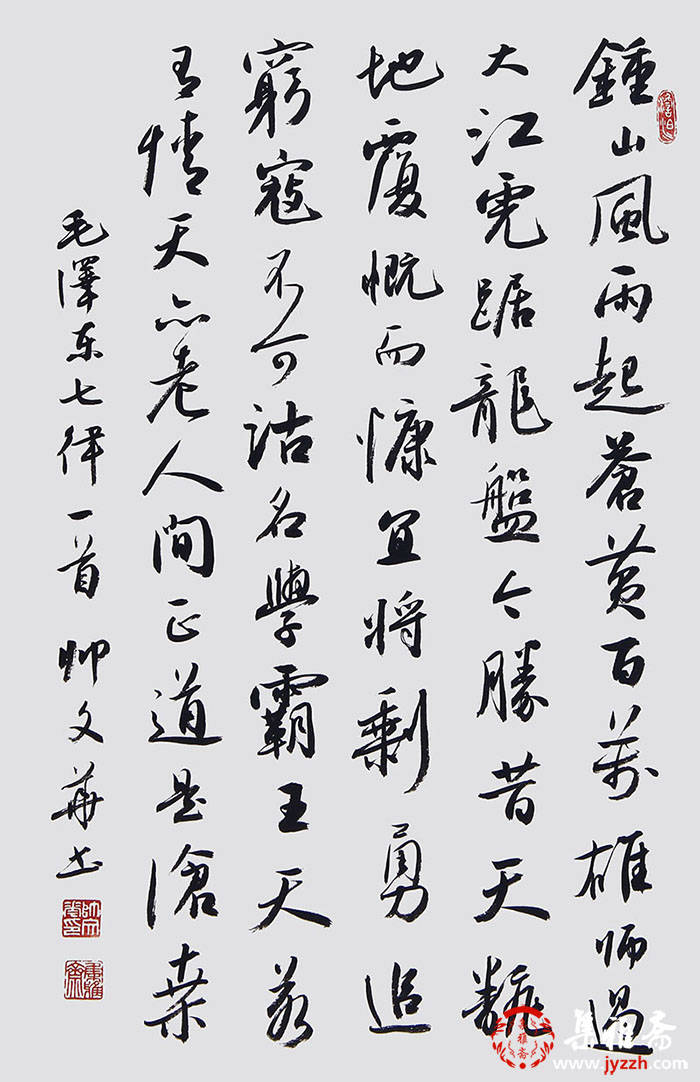 鍾山風雨起蒼黄百萬雄师過
大江虎踞龍盤今勝昔天翻
地覆慨而慷宜将剩勇追
窮寇不可沽名學霸王天若
有情天亦老人間正道是滄桒
毛澤东七律一首 帅文華书
集雅斋
www.jyzzh.com